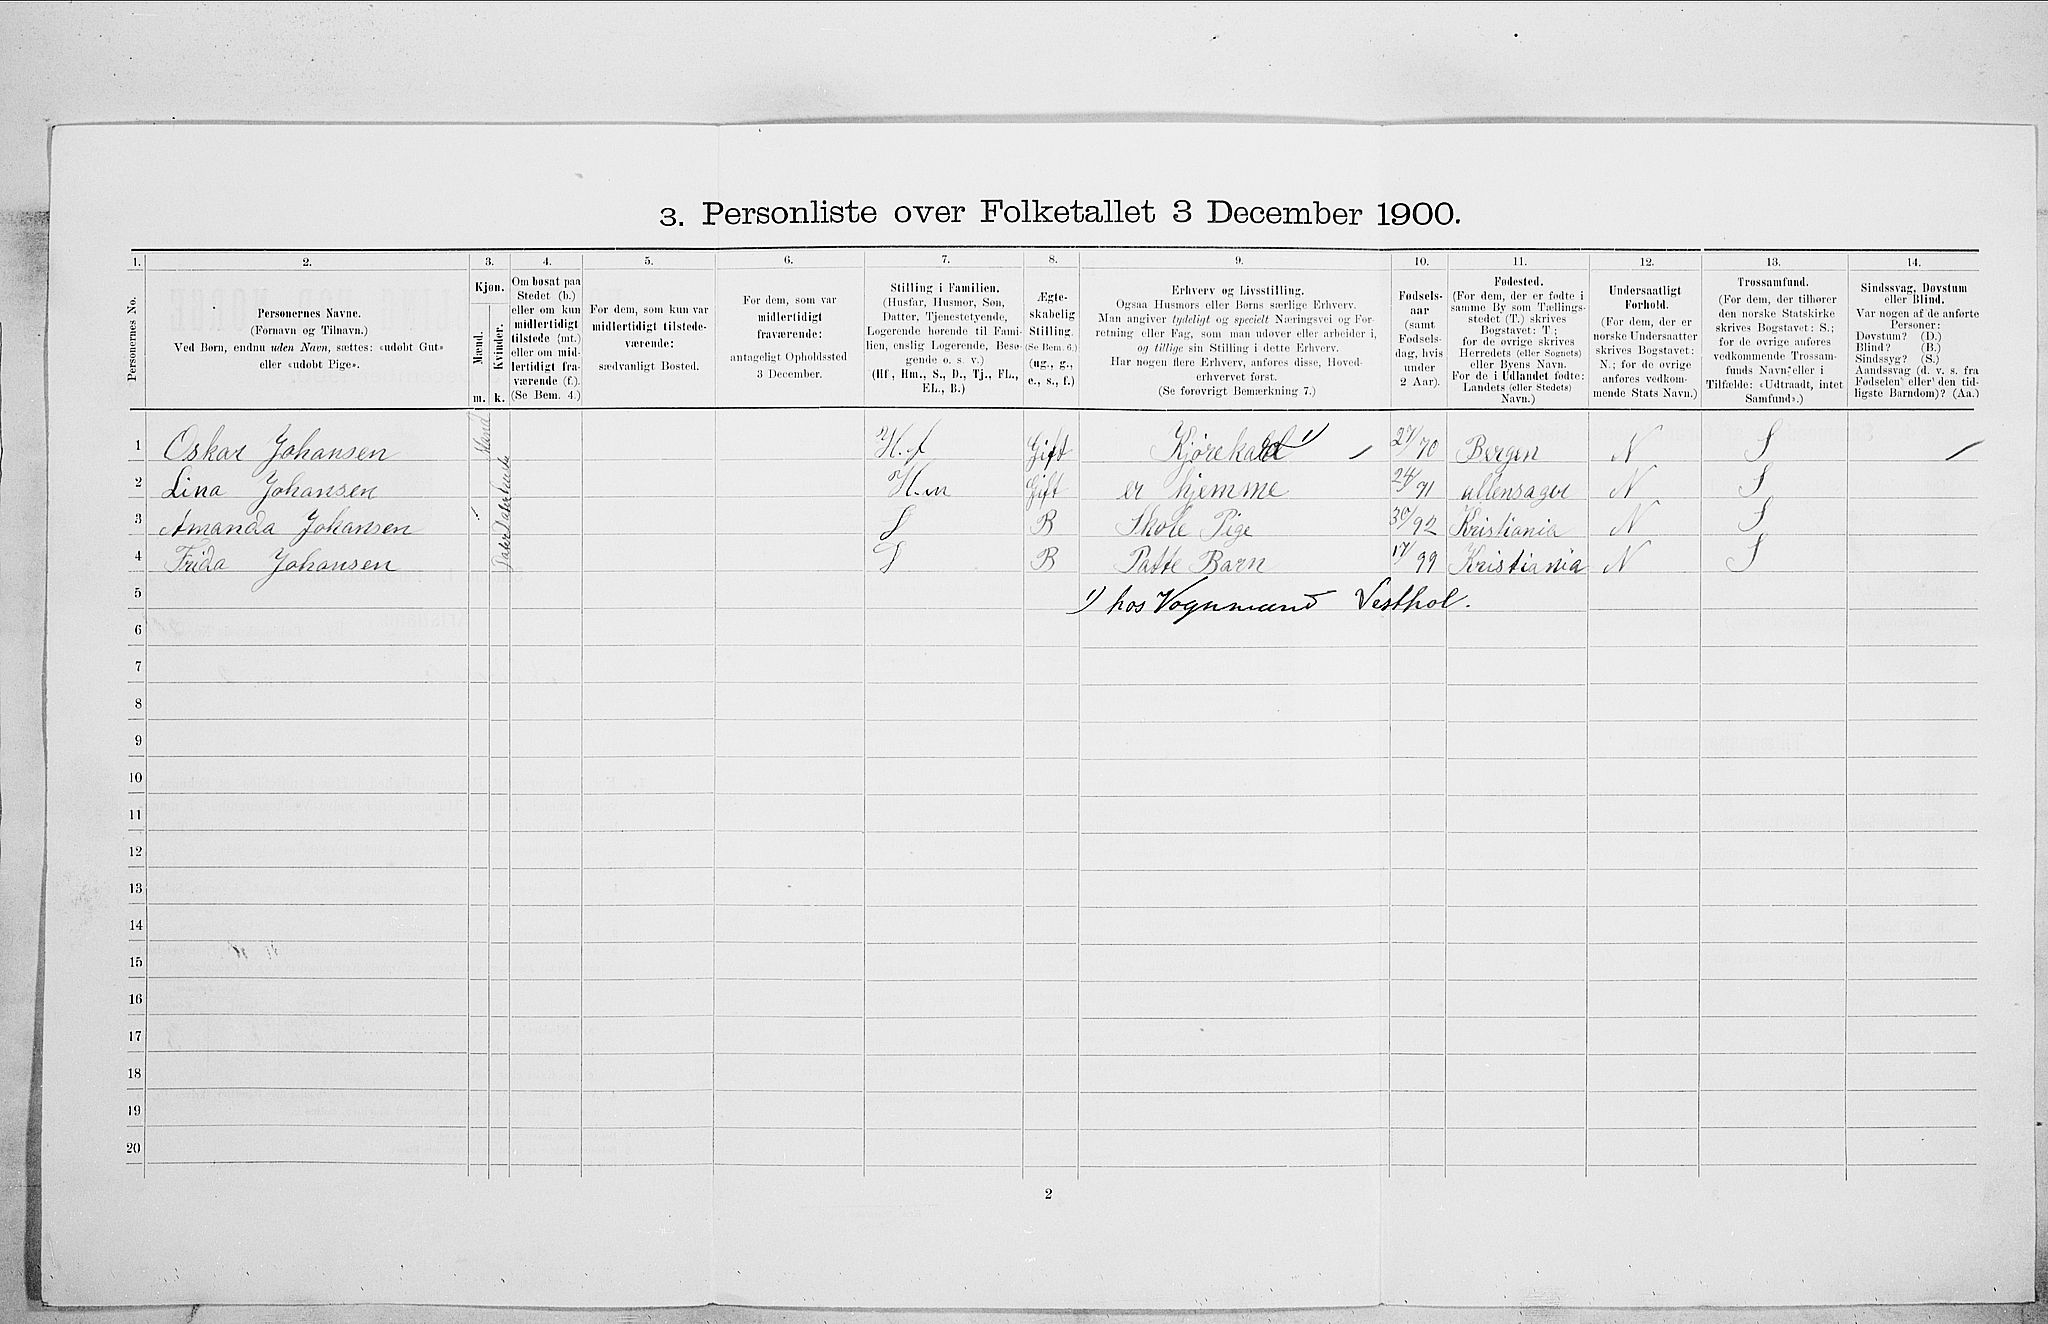 3. Personliste over Folketallet 3 December 1900.
1. 2. 3. 4. 5. 6. 7. 8. 9. 10. 11. 12. 13. 14.
Personernes No.
Personernes Navne.
(Fornavn og Tilnavn.)
Ved Børn, endnu uden Navn, sættes: «udøbt Gut»
eller «udøbt Pige».
Kjøn.
Mænd.
Kvinder.
m. k.
Om bosat paa
Stedet (b.)
eller om kun
midlertidigt
tilstede (mt.)
eller om mid-
lertidigt fra-
værende (f.).
(Se Bem. 4.)
For dem, som kun var
midlertidigt tilstede-
værende:
sædvanligt Bosted.
For dem, som var
midlertidigt
fraværende:
antageligt Opholdssted
3 December.
Stilling i Familien.
(Husfar, Husmor, Søn,
Datter, Tjenestetyende,
Logerende hørende til Fami-
lien, enslig Logerende, Besø-
gende o. s. v.)
(Hf, Hm., S., D., Tj., FL.,
EL., B.)
Ægte-
skabelig
Stilling.
(Se Bem. 6.)
(ug., g.,
e., s., f.)
Erhverv og Livsstilling.
Ogsaa Husmors eller Børns særlige Erhverv.
Man angiver tydeligt og specielt Næringsvei og For-
retning eller Fag, som man udøver eller arbeider i,
og tillige sin Stilling i dette Erhverv.
Har nogen flere Erhverv, anføres disse, Hoved-
erhvervet først.
(Se forøvrigt Bemærkning 7.)
Fødsels-
aar
(samt
Fødsels-
dag, hvis
under
2 Aar).
Fødested.
(For dem, der er fødte i
samme By som Tællings-
stedet (T.) skrives
Bogstavet: T;
for de øvrige skrives
Herredets (eller Sognets)
eller Byens Navn.
For de i Udlandet fødte:
Landets (eller Stedets)
Navn.)
Undersaatligt
Forhold.
(For dem, der er
norske Undersaatter
skrives Bogstavet:
N.; for de øvrige
anføres vedkom-
mende Stats Navn.)
Trossamfund.
(For dem, der tilhører
den norske Statskirke
skrives Bogstavet: S.;
for de øvrige anføres
vedkommende Trossam-
funds Navn, eller i
Tilfælde: «Udtraadt, intet
Samfund».)
Sindssvag, Døvstum
eller Blind.
Var nogen af de anførte
Personer:
Døvstum? (D.)
Blind? (B.)
Sindssyg? (S.)
Aandssvag (d. v. s. fra
Fødselen eller den tid-
ligste Barndom)? (Aa.)
1 Oskar Johansen H.f Gift Kjørekald 1) 27/70 Bergen N S
2 Lina Johansen H.m Gift er hjemme 24/71 ullensager N S
3 Amanda Johansen S B Skole Pige 30/92 Kristiania N S
4 Frida Johansen S B Patte Barn 17/99 Kristiania N S
5 1) hos Vognmand Vesthol.
6
7
8
9
10
11
12
13
14
15
16
17
18
19
20
2